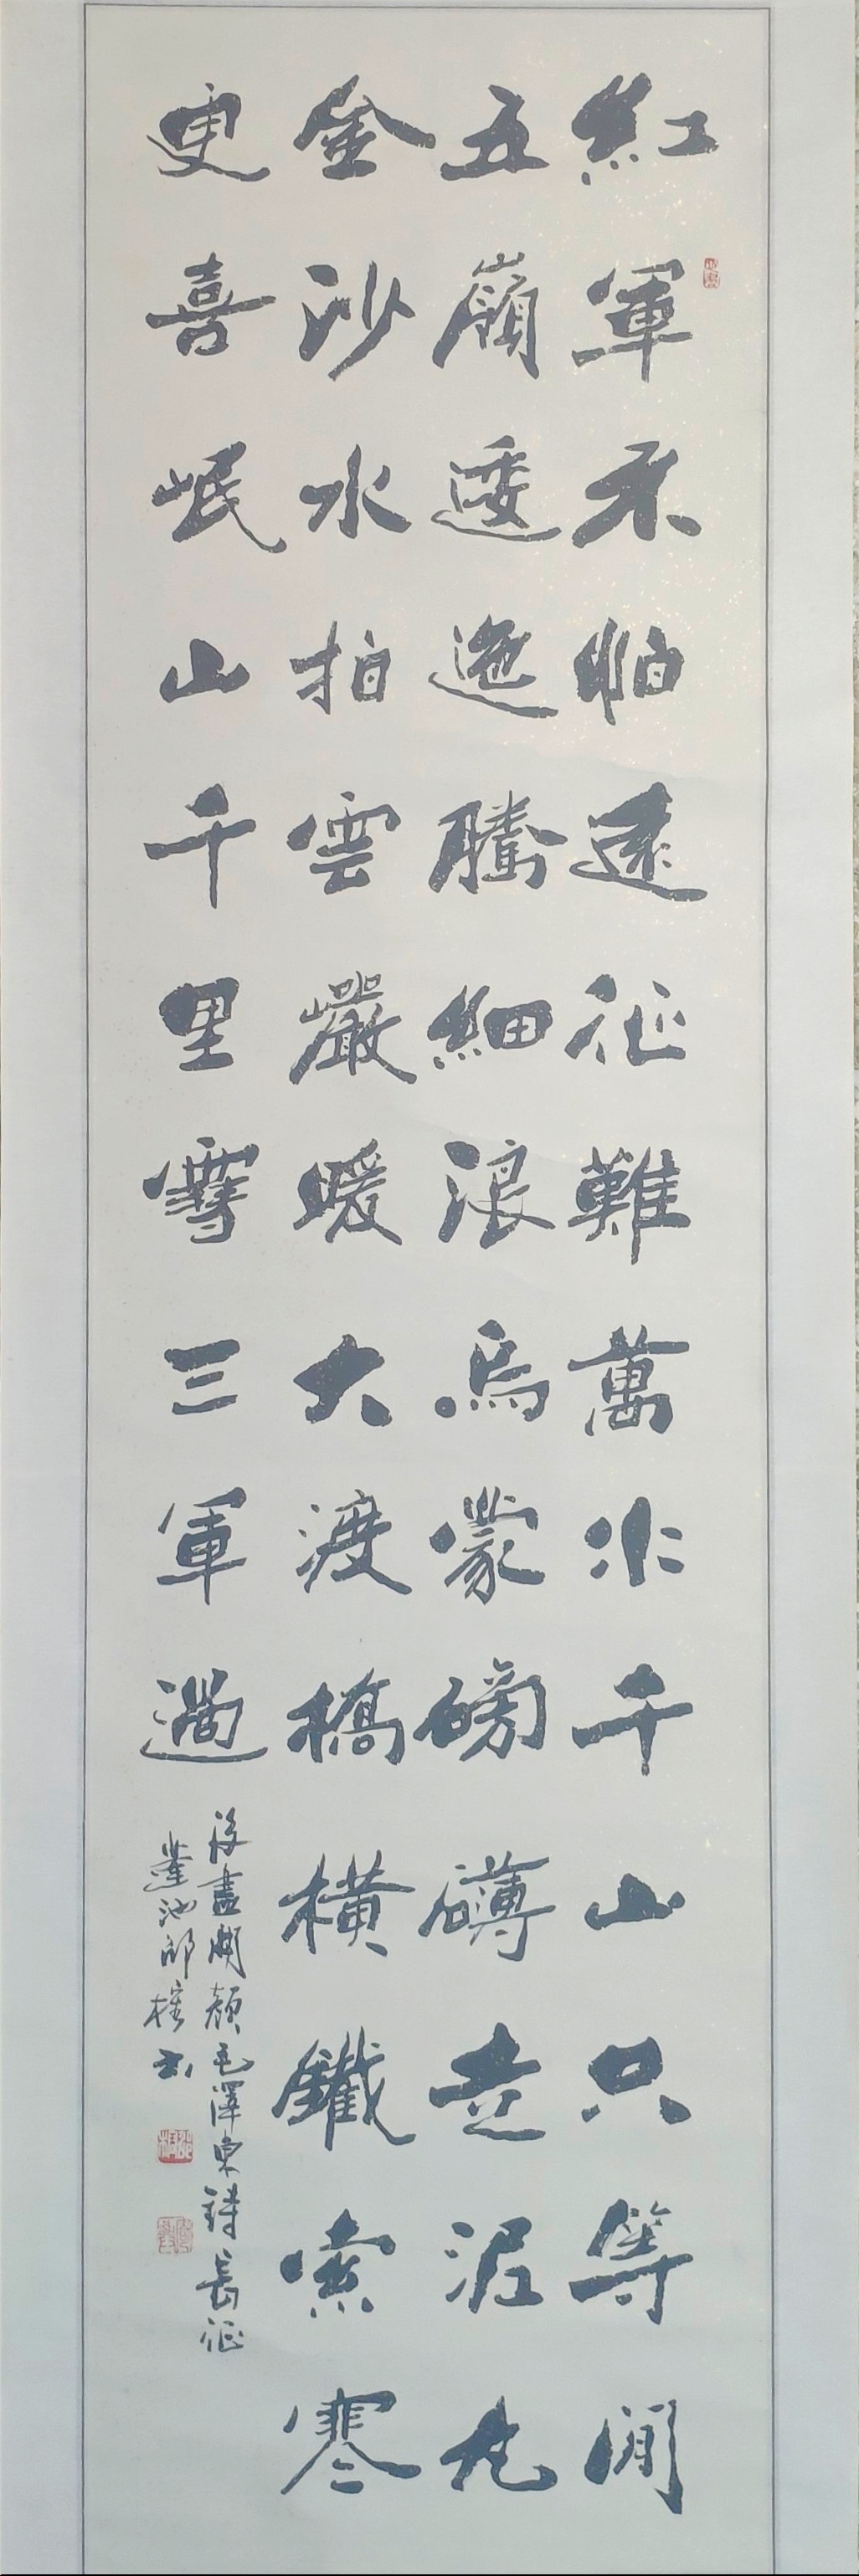 紅軍不怕遠征難萬水千山只等閒
五嶺逶迤騰細浪烏蒙磅礴走泥丸
金沙水拍雲巖暖大渡橋橫鐵索寒
更喜岷山千里雪三軍過
後盡開顏毛澤東詩長征
蓮池邱